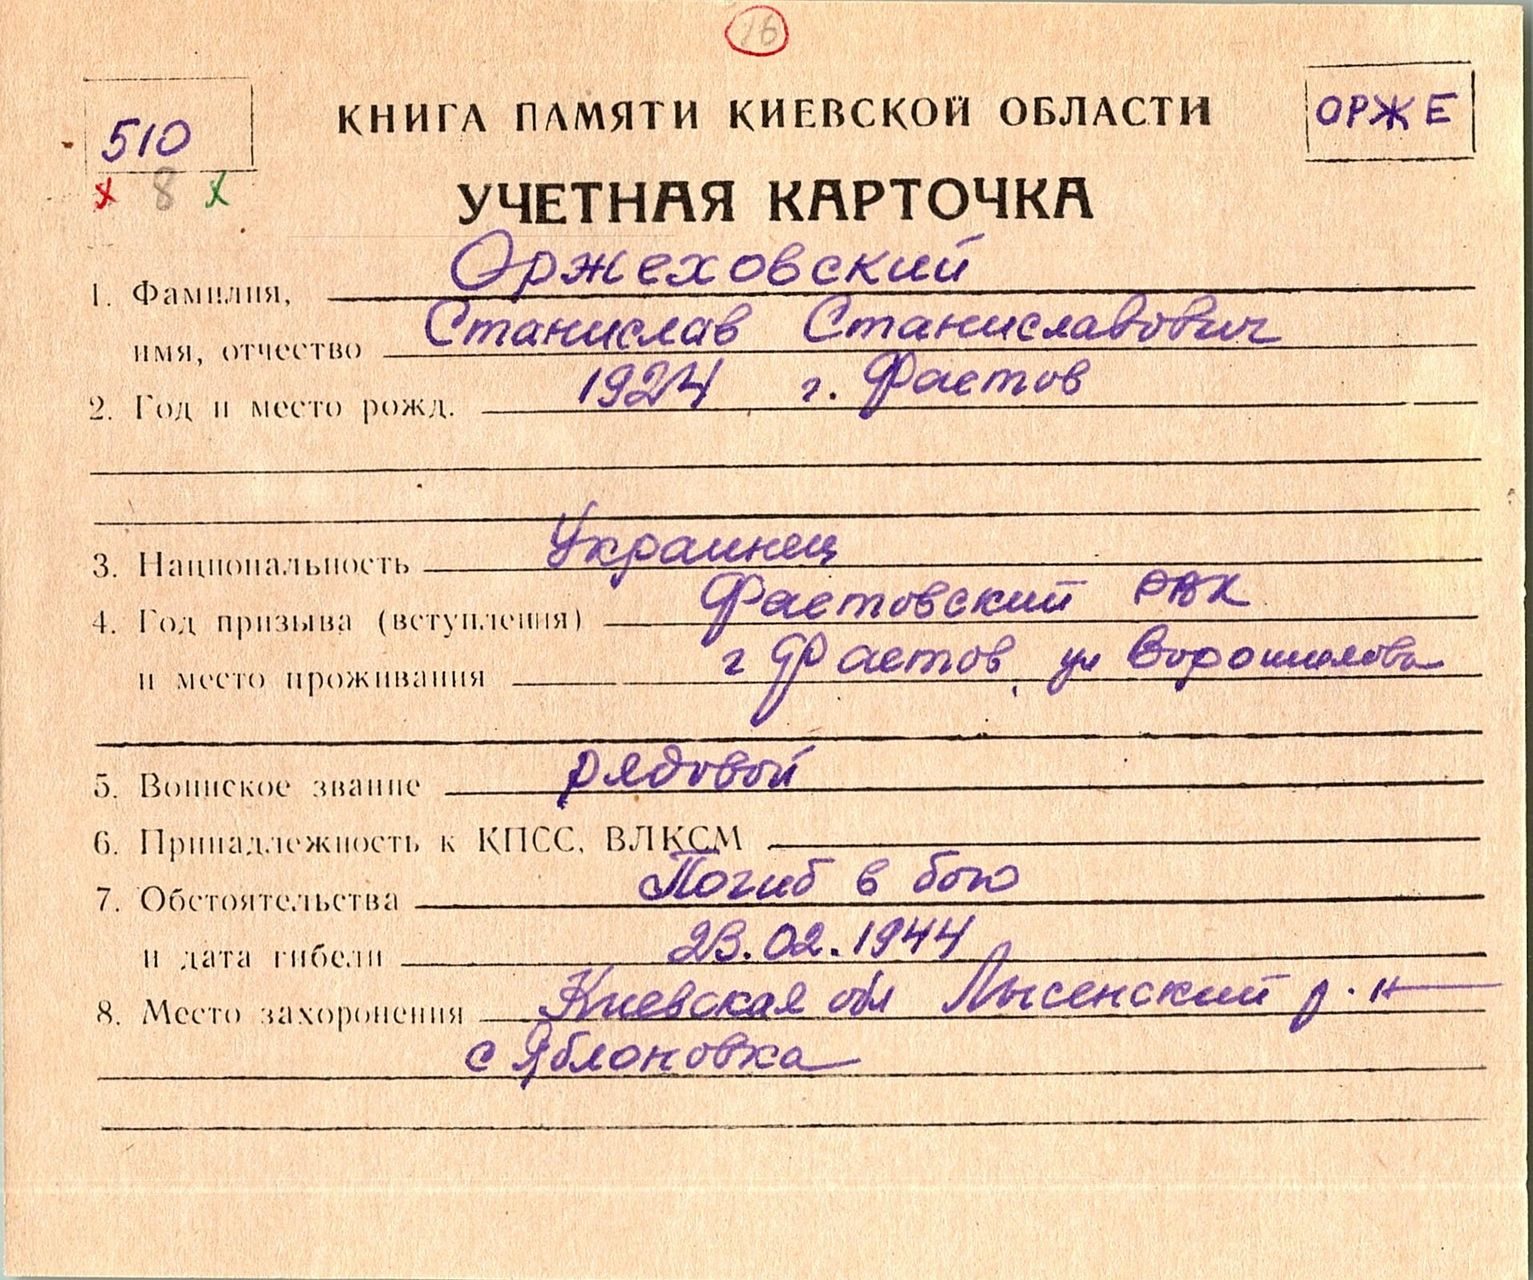 16
510
КНИГА ПАМЯТИ КИЕВСКОЙ ОБЛАСТИ
ОРЖЕ
х 8 х
УЧЕТНАЯ КАРТОЧКА
1. Фамилия, Оржеховский
имя, отчество Станислав Станиславович
2. Год и место рожд. 1924 г. Фастов
3. Национальность Украинец
4. Год призыва (вступления) Фастовский РВК
и место проживания г Фастов, ул Ворошилова
5. Воинское звание рядовой
6. Принадлежность к КПСС, ВЛКСМ
7. Обстоятельства Погиб в бою
и дата гибели 23.02.1944
8. Место захоронения Киевская обл Лысенский р-н
с Яблоновка